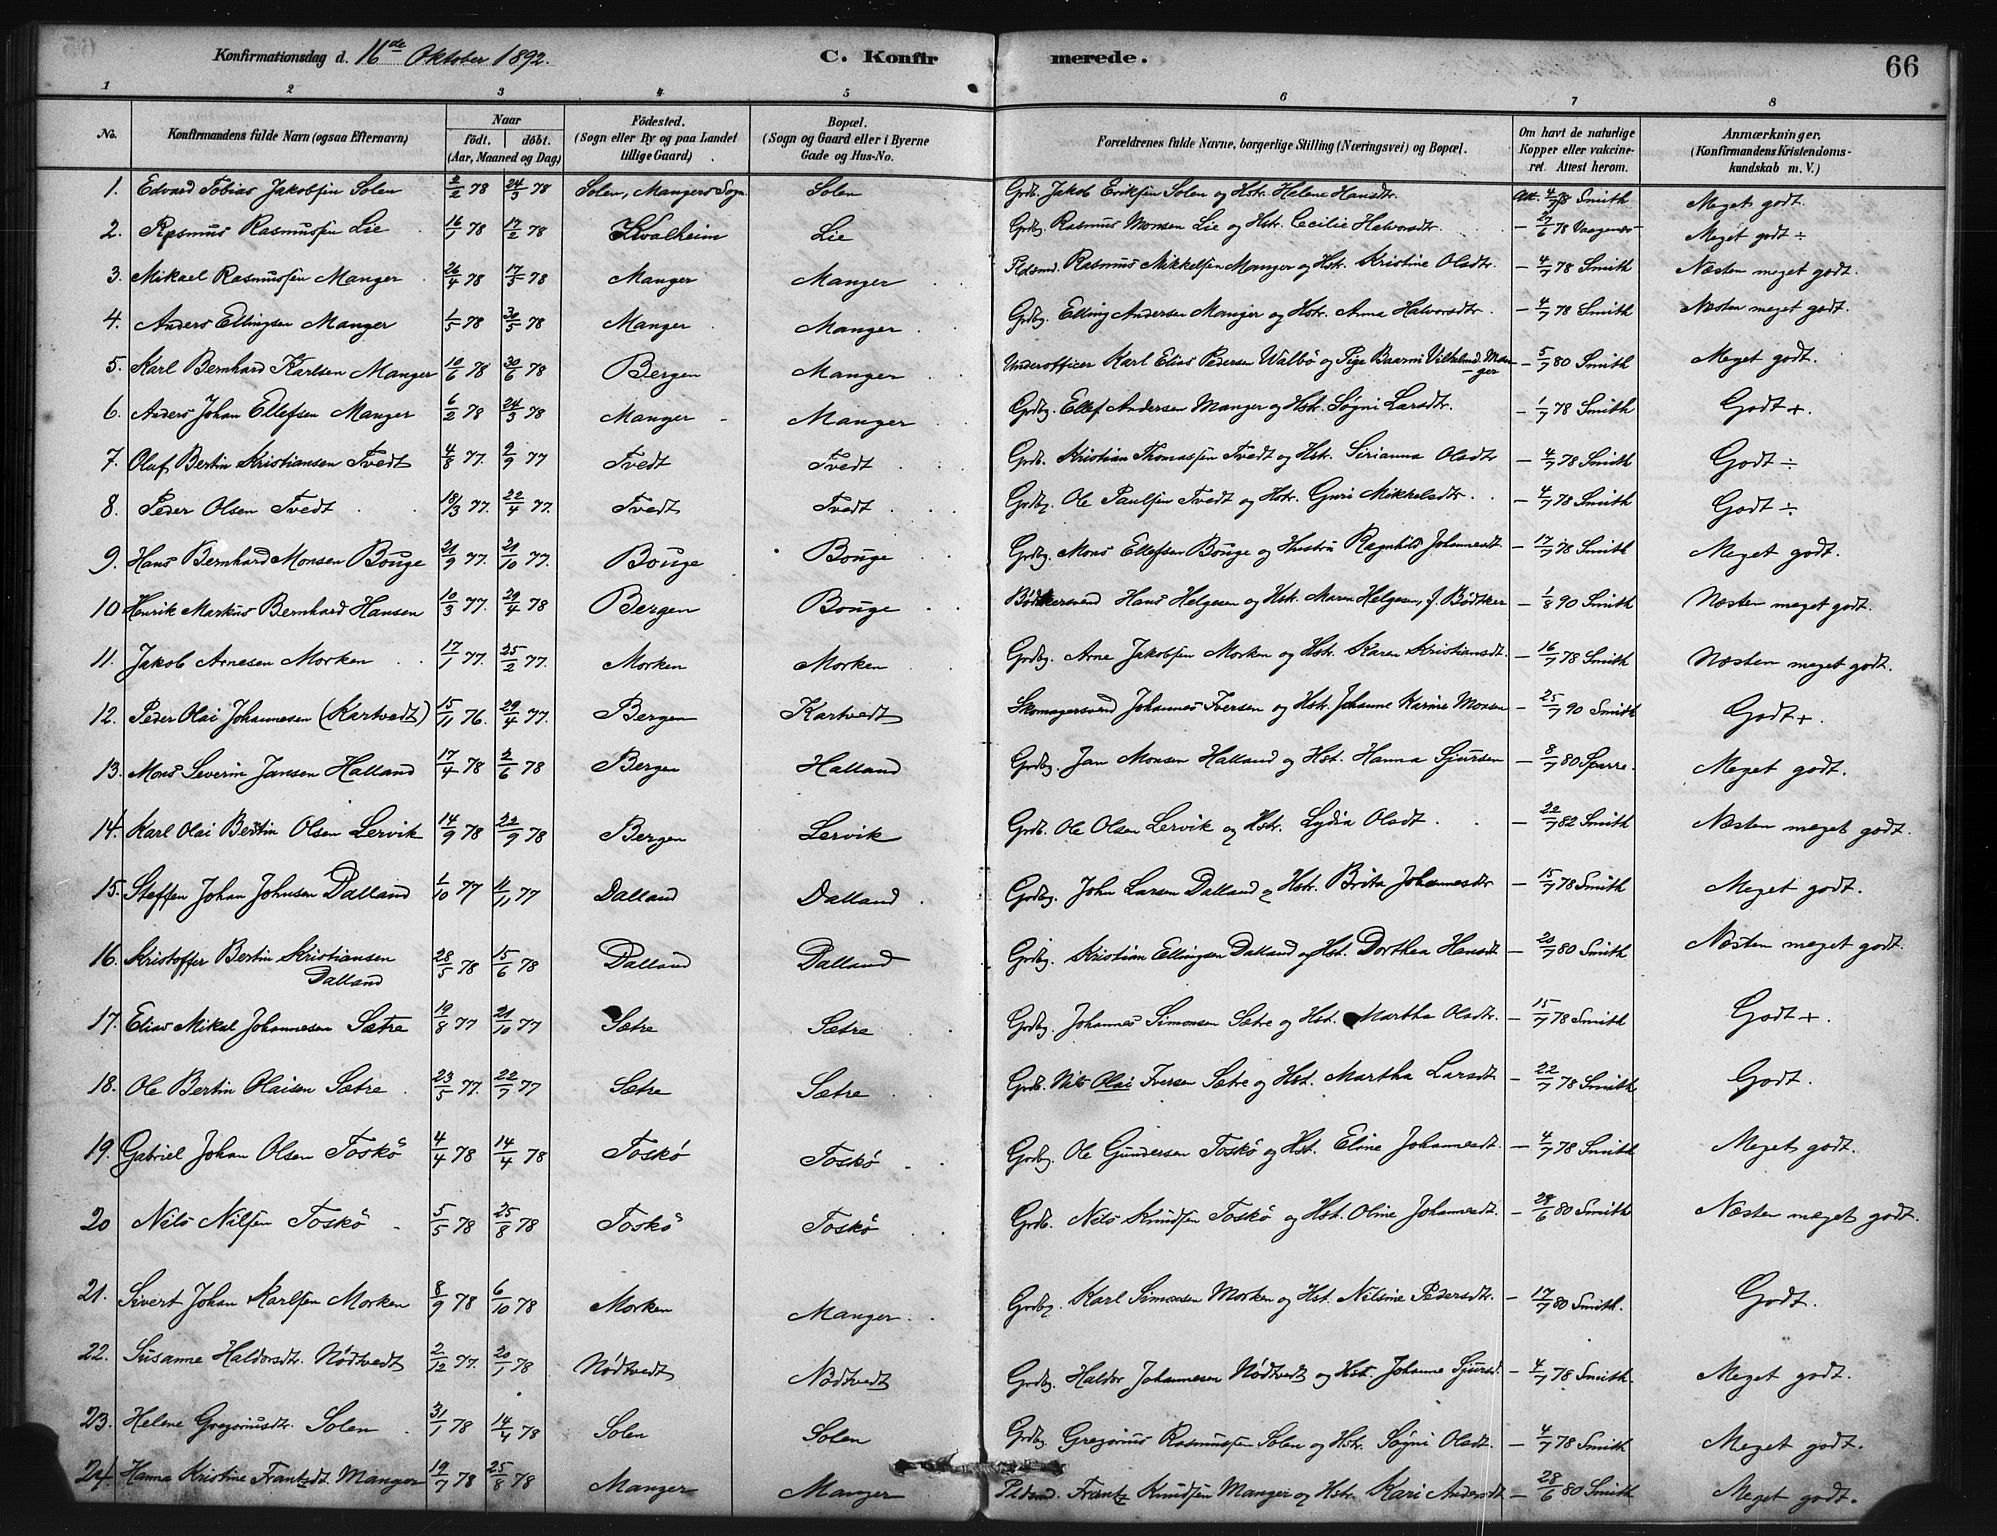 Konfirmationsdag d. 16de Oktober 1892. C. Konfirmerede. 66
1 2 3 4 5 6 7 8
No. Konfirmandens fulde Navn (ogsaa Efternavn) Naar født. døbt. (Aar, Maaned og Dag) Födested. (Sogn eller By og paa Landet tillige Gaard) Bopæl. (Sogn og Gaard eller i Byerne Gade og Hus-No. Forældrenes fulde Navne, borgerlige Stilling (Næringsvei) og Bopæl. Om havt de naturlige Kopper eller vakcineret. Attest herom. Anmærkninger. (Konfirmandens Kristendomskundskab m. V.)
1. Edvard Tobias Jakobsen Solen 2/2 78 24/3 78 Solen, Mangers Sogn Solen Grdb. Jakob Eriksen Solen og Hstr. Helene Hansdtr. Att. 4/7 78 Smith Meget godt.
2. Rasmus Rasmussen Lie 16/1 78 17/2 78 Kvalheim Lie Grdbg. Rasmus Monsen Lie og Hstr. Cecilie Halvorsdtr. – 27/6 78 Meget godt ÷
3. Mikael Rasmussen Manger 26/4 78 17/5 78 Manger Manger Pldsmd. Rasmus Mikkelsen Manger og Hstr. Kristine Olsdtr. – 4/7 78 Smith Næsten meget godt.
4. Anders Ellingsen Manger 1/5 78 30/5 78 Manger Manger Grdbg. Elling Andersen Manger og Hstr. Anna Halvorsdtr. – 4/7 78 Smith Næsten meget godt.
5. Karl Bernhard Karlsen Manger 10/6 78 30/6 78 Bergen Manger Underofficer Karl Elias Pedersen Walbö og Pige Vilhelmd. Manger – 5/7 80 Smith Meget godt.
6. Anders Johan Ellefsen Manger 6/2 78 24/3 78 Manger Manger Grdbg. Ellef Andersen Manger og Hstr. Søgni Larsdtr. – 1/7 78 Smith Godt +.
7. Olaf Bertin Kristiansen Tvedt 4/8 77. 2/9 77 Tvedt Tvedt Grdb. Kristian Thomassen Tvedt og Hst. Sirianna Olsdtr – 4/7 78 Smith Godt ÷
8. Peder Olsen Tvedt 18/3 77. 22/4 77. Tvedt Tvedt Grdbg. Ole Paulsen Tvedt og Hstr. Guri Mikkelsdtr. – 4/7 78 Smith Godt ÷
9. Hans Bernhard Monsen Bouge 21/9 77. 21/10 77. Bouge Bouge Grdbg. Mons Ellefsen Bouge og Hustru Ragnhild Johannesdt. – 17/7 78 Smith Meget godt.
10 Henrik Markus Bernhard Hansen 10/3 77. 29/4 78 Bergen Bouge Bødkersvend Hans Helgesen og Hst. Maren Helgesen, f. Bødtker – 1/8 90 Smith Næsten meget godt.
11. Jakob Arnesen Morken 17/1 77. 25/2 77. Morken Morken Grdbg. Arne Jakobsen Morken og Hstr. Karen Kristiansdt. – 16/7 78 Smith Næsten meget godt.
12. Peder Olai Johannesen (Kartvedt) 15/11 76. 29/4 77. Bergen Kartvedt Skomagersvend Johannes Iversen og Hstr. Johanne Karine Monsen – 25/7 90 Smith Godt +.
13. Mons Severin Jansen Halland 17/4 78 2/6 78 Bergen Halland Grdbg. Jan Monsen Halland og Hst. Hanna Sjursen – 8/7 80 Sparre. Meget godt.
14. Karl Olai Bertin Olsen Lervik 14/9 78 22/9 78 Bergen Lervik Grdb. Ole Olsen Lervik og Hstr. Lydia Olsdt. – 22/7 82 Smith Næsten meget godt.
15. Steffen Johan Johnsen Dalland 1/10 77 11/11 77 Dalland Dalland Grdbg. John Larsen Dalland og Hstr. Brita Johannesdtr – 15/7 78 Smith Meget godt.
16. Kristoffer Bertin Kristiansen Dalland 28/5 78 15/6 78 Dalland Dalland Grdbg. Kristian Ellingsen Dalland og Hst. Dorthea Hansdt – 20/7 80 Smith Næsten meget godt.
17. Elias Mikal Johannesen Sætre 19/8 77 21/10 77 Sætre Sætre Grdbg. Johannes Simonsen Sætre og Hst. Martha Olsdtr. – 15/7 78 Smith Godt +.
18. Ole Bertin Olaisen Sætre 23/5 77. 22/7 77 Sætre Sætre Grdb. Nils Olai Iversen Sætre og Hst. Martha Larsdt – 22/7 78 Smith Godt.
19. Gabriel Johan Olsen Toskö 4/4 78 14/4 78 Toskö Toskö Grdbg. Ole Gundersen Toskö og Hst. Eline Johannesdt. – 4/7 78 Smith Meget godt.
20 Nils Nilsen Toskö 5/5 78 25/8 78 Toskö Toskö Grdb. Nils Knudsen Toskö og Hst. Oline Johannesdt. – 29/6 80 Smith Næsten meget godt.
21. Sivert Johan Karlsen Morken 8/9 78 6/10 78 Morken Manger. Grdbg. Karl Simonsen Morken og Hst. Nilsine Pedersdtr. – 17/7 80 Smith. Godt.
22. Susanne Haldorsdtr. Nödtvedt 2/12 77. 20/1 78 Nödtvedt Nödtvedt Grdbg. Haldor Johannesen Nödtvedt og Hst. Johanne Sjursd. – 4/7 78 Smith. Meget godt.
23. Helene Gregoriusdtr. Solen 31/1 78 14/4 78 Solen Solen Grdbg. Gregorius Rasmussen Solen og Hstr. Søgni Olsdt. – 4/7 78 Smith Meget godt.
24. Hanna Kristine Frantzdt. Manger 19/7 78 25/8 78 Manger Manger Pldsmd. Frantz Knudsen Manger og Hstr. Kari Andersdt – 28/6 80 Smith Meget godt.